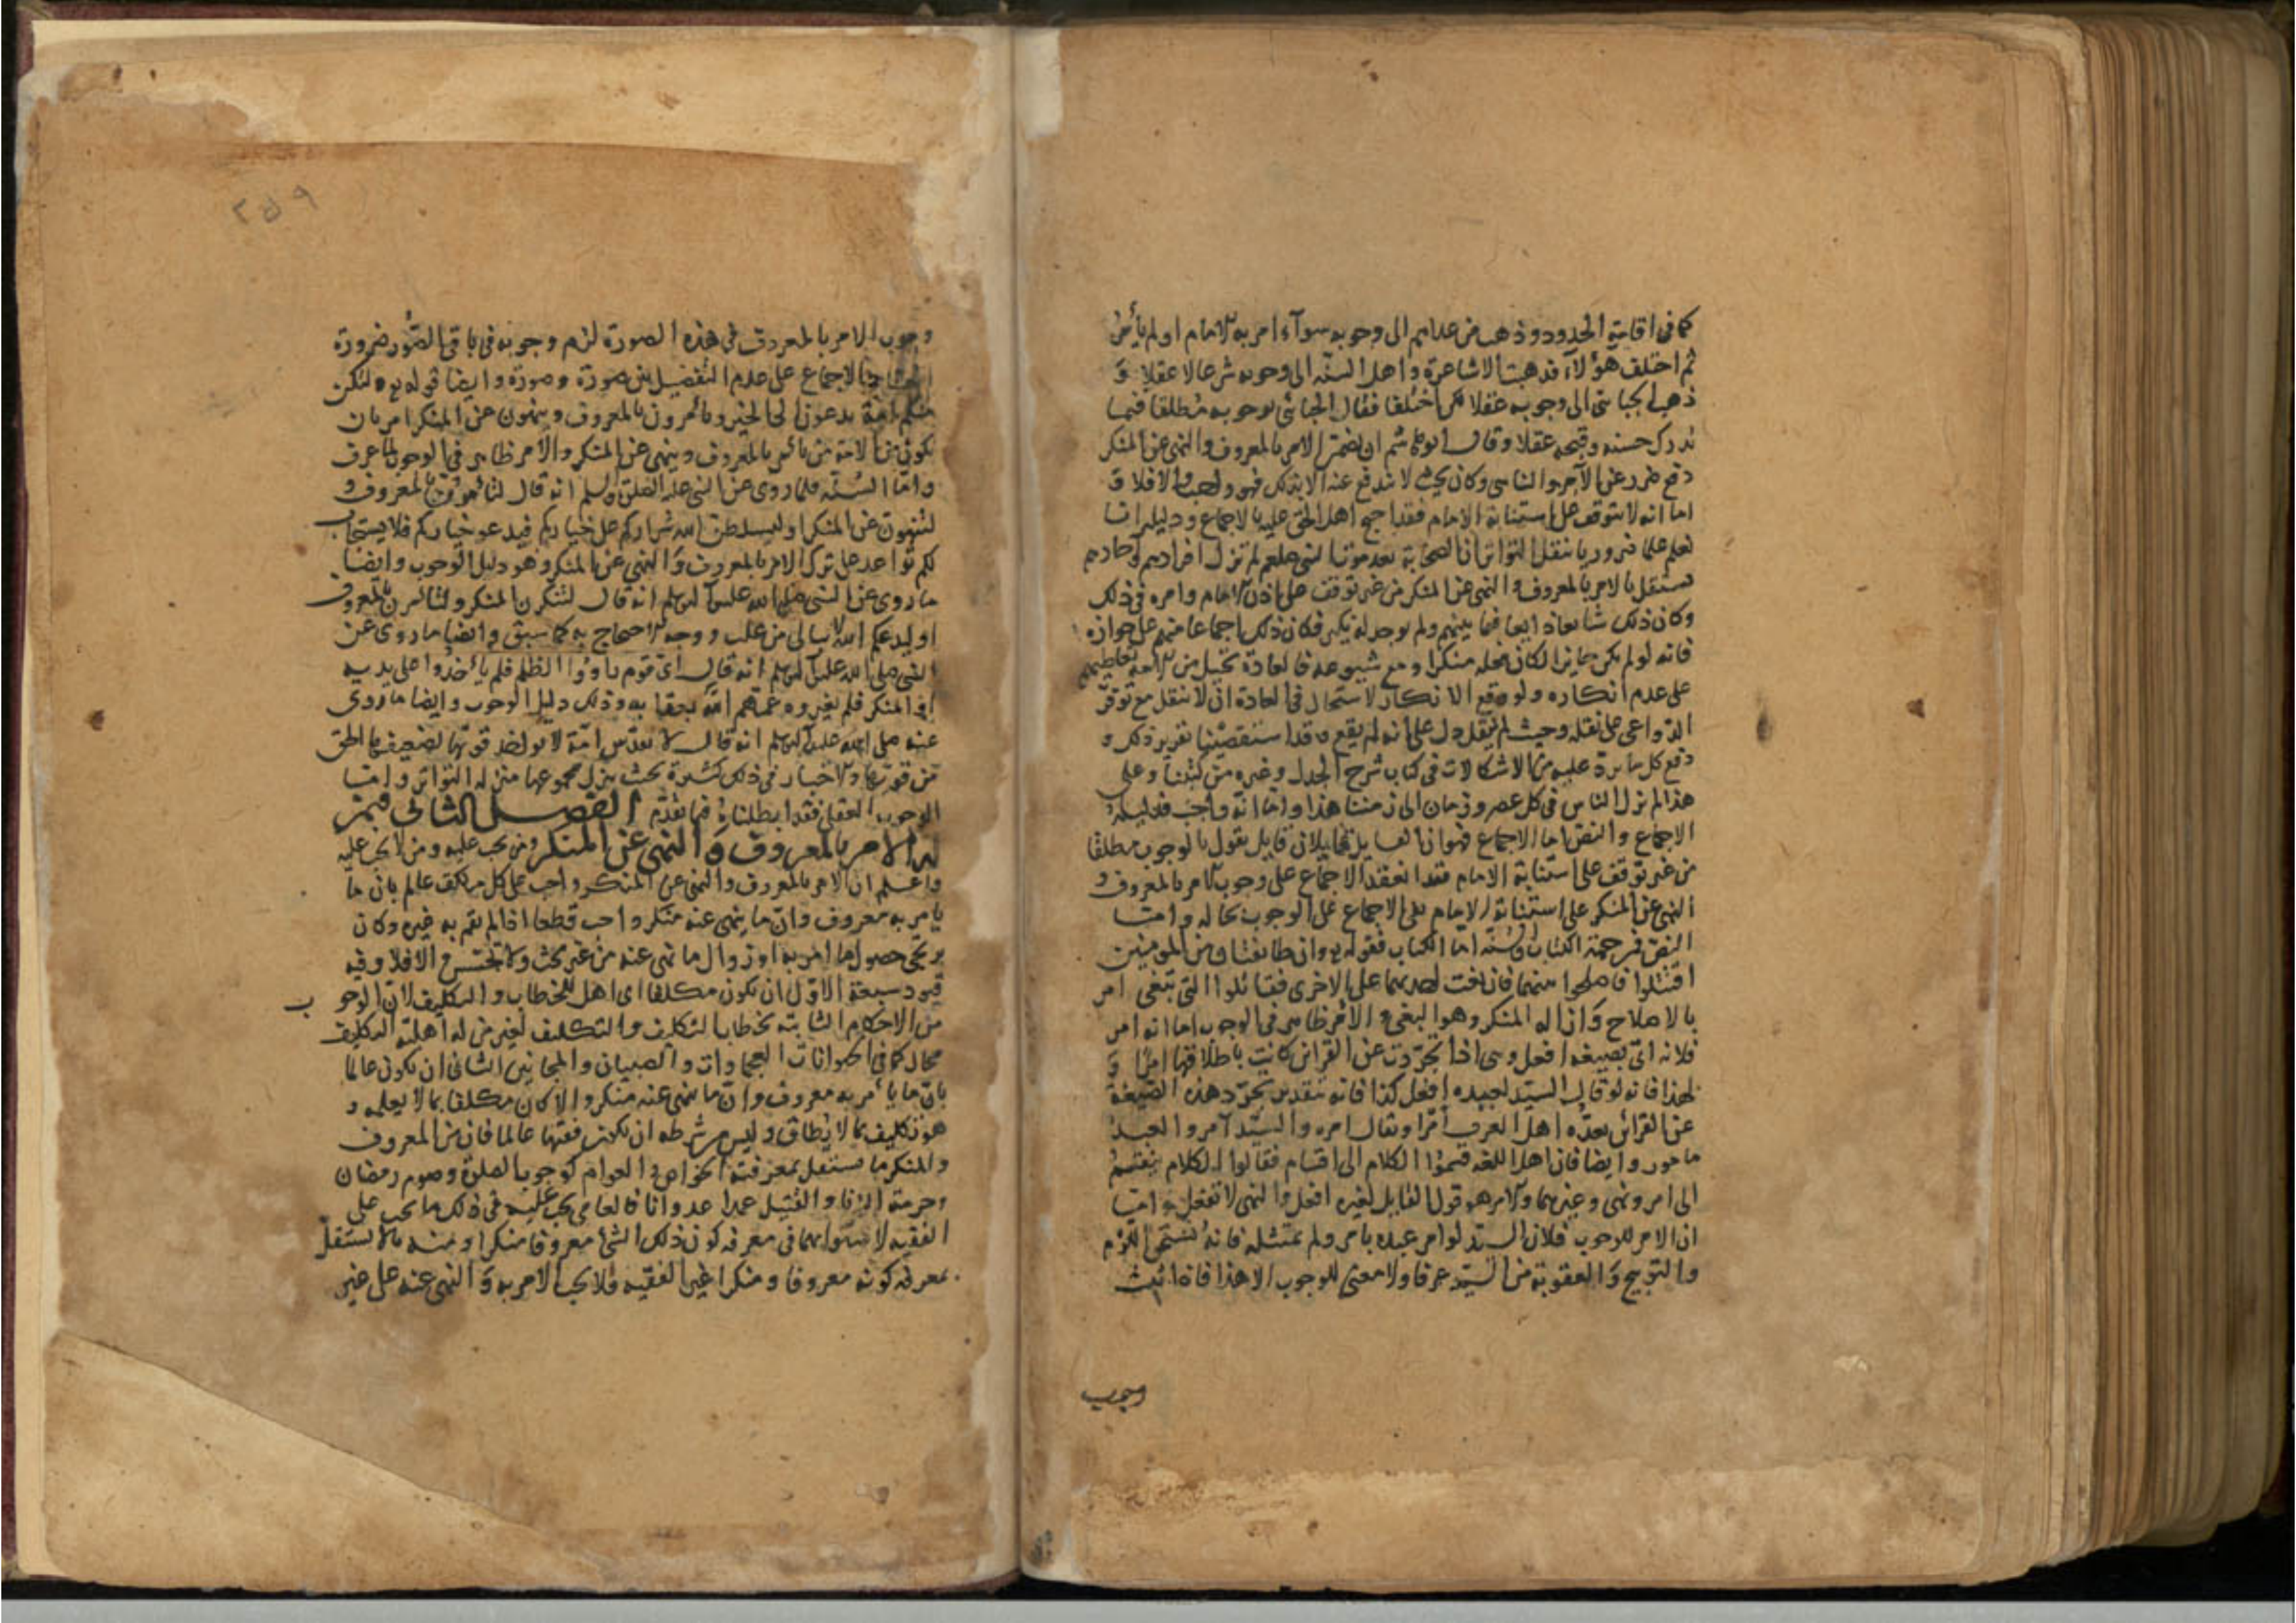 كما فى اقامة الحدود وذهب من عداهم الى وجوبه سوآء امر به الامام او لم يأمر
ثم اختلف هؤلاء فذهبت الاشاعرة واهل السنة الى وجوبه شرعا لا عقلا و
ذهب الجبائى الى وجوبه عقلا ثم اختلفا فقال الجبائى بوجوبه مطلقا فيما
يدرك حسنه وقبحه عقلا وقال ابو هاشم ان تضمن الامر بالمعروف والنهى عن المنكر
دفع ضرر عن الآمر والناهى وكان بحيث لا يندفع عنه الا بذلك فهو واجب والا فلا و
اما انه لا يتوقف على استنابة الامام فقد احتج اهل الحق عليه بالاجماع ودليله انا
نعلم علما ضروريا بنقل التواتر ان الصحابة بعد موت النبى صلعم لم تزل افرادهم وآحادهم
تستقل بالامر بالمعروف والنهى عن المنكر من غير توقف على اذن الامام وامره فى ذلك
وكان ذلك شايعا ذايعا فيما بينهم ولم يوجد له نكير فكان ذلك اجماعا منهم على جوازه
فانه لو لم يكن جايزا لكان فعله منكرا ومع شيوعه فالعادة تحيل من الامة
على عدم انكاره ولو وقع الانكار لاستحال فى العادة ان لا ينقل مع توفر
الدواعى على نقله وحيث لم ينقل دل على انه لم يقع وقد استقصينا تقرير ذلك و
دفع كل ما يرد عليه من الاشكالات فى كتاب شرح الجدل وغيره من كتبنا وعلى
هذا لم يزل الناس فى كل عصر وزمان الى زمننا هذا واما انه واجب فدليله
الاجماع والنص اما الاجماع فهو ان القايل قايلان قايل يقول بالوجوب مطلقا
من غير توقف على استنابة الامام فقد انعقد الاجماع على وجوب الامر بالمعروف و
النهى عن المنكر على استنابة الامام بقى الاجماع على الوجوب بحاله واما
النص فمن جهة الكتاب والسنة اما الكتاب فقوله تع وان طائفتان من المومنين
اقتتلوا فاصلحوا بينهما فان بغت احديهما على الاخرى فقاتلوا التى تبغى امر
بالاصلاح وازالة المنكر وهو البغى والامر ظاهر فى الوجوب اما انه امر
فلانه اتى بصيغة افعل وهى اذا تجردت عن القرائن كانت باطلاقها امرا و
لهذا فانه لو قال السيد لعبده افعل كذا فانه بتقدير تجرد هذه الصيغة
عن القرائن يعده اهل العرف أمرا ويقال امره والسيد آمر والعبد
مامور وايضا فان اهل اللغة قسموا الكلام الى اقسام فقالوا الكلام ينقسم
الى امر ونهى وغيرهما والامر هو قول القايل لغيره افعل والنهى لا تفعل واما
ان الامر للوجوب فلان السيد لو امر عبده بامر ولم يمتثله فانه يستحق اللوم
والتوبيخ والعقوبة من السيد عرفا ولا معنى للوجوب الا هذا فاذا ثبت
وجوب
٢٥٩
وجوب الامر بالمعروف فى هذه الصورة لزم وجوبه فى باقى الصور ضرورة
الاجماع على عدم التفصيل بين صورة وصورة وايضا قوله تع ولتكن
منكم امة يدعون الى الخير ويأمرون بالمعروف وينهون عن المنكر امر بان
يكون من الامة من يأمر بالمعروف وينهى عن المنكر والامر ظاهر فى الوجوب لما عرف
واما السنة فلما روى عن النبى عليه الصلوة والسلم انه قال لتأمرون بالمعروف و
لتنهون عن المنكر او ليسلطن الله شراركم على خياركم فيدعو خياركم فلا يستجاب
لكم تواعد على ترك الامر بالمعروف والنهى عن المنكر وهو دليل الوجوب وايضا
ما روى عن النبى صلى الله عليه وسلم انه قال لتنكرن المنكر ولتأمرن بالمعروف
او ليدعكم الله لا يبالى من غلب ووجه الاحتجاج به كما سبق وايضا ما روى عن
النبى صلى الله عليه وسلم انه قال اى قوم راووا الظلم فلم يأخذوا على يديه
او المنكر فلم يغيروه عمهم الله بعقابه وذلك دليل الوجوب وايضا ما روى
عنه صلى الله عليه وسلم انه قال لا تقدس امة لا يواخذ قويها لضعيفها الحق
من قويها والاخبار فى ذلك كثيرة بحيث ينزل مجموعها منزلة التواتر واما
الوجوب العقلى فقد ابطلناه فيما تقدم الفصل الثانى فيمن
له الامر بالمعروف والنهى عن المنكر ومن يجب عليه ومن لا يجب عليه
واعلم ان الامر بالمعروف والنهى عن المنكر واجب على كل مكلف عالم بان ما
يامر به معروف وان ما ينهى عنه منكر واجب قطعا اذا لم يقم به غيره وكان
يرتجى حصول ما امر به او زوال ما نهى عنه من غير بحث ولا تجسس والا فلا وفيه
قيود سبعة الاول ان يكون مكلفا اى اهل للخطاب والتكليف لان الوجو ب
من الاحكام الثابتة بخطاب التكليف والتكليف لغير من له اهلية التكليف
محال كما فى الحيوانات العجماوات والصبيان والمجانين الثانى ان يكون عالما
بان ما يأمر به معروف وان ما ينهى عنه منكر والا كان مكلفا بما لا يعلمه و
هو تكليف بما لا يطاق وليس من شرطه ان يكون فقيها عالما فان من المعروف
والمنكر ما يستقل بمعرفته الخواص و العوام كوجوب الصلوة وصوم رمضان
وحرمة الزنا والقتل عمدا عدوانا فالعامى يجب عليه فى ذلك ما يجب على
الفقيه لاستوائهما فى معرفة كون ذلك الشئ معروفا منكرا ومنه ما لا يستقل
بمعرفة كونه معروفا ومنكرا غير الفقيه فلا يجب الامر به والنهى عنه على غير